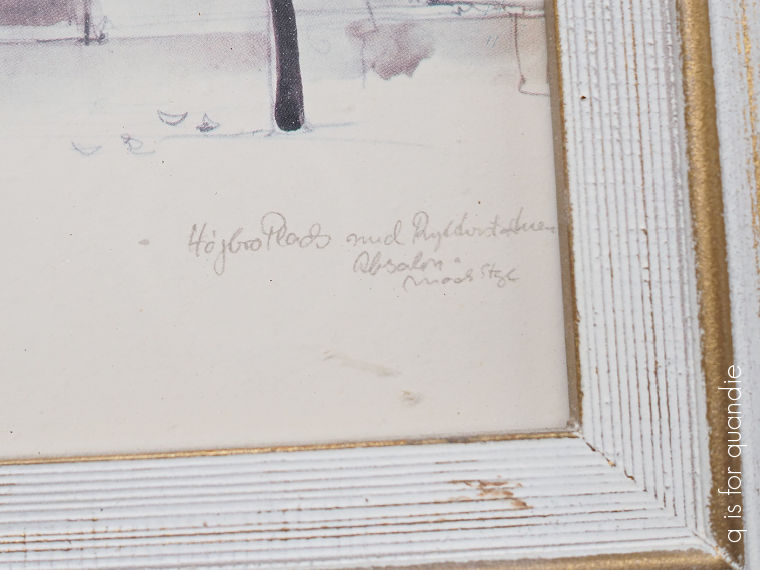 Højbro Plads med Rytterstatuen
Absalon
q is for quandie